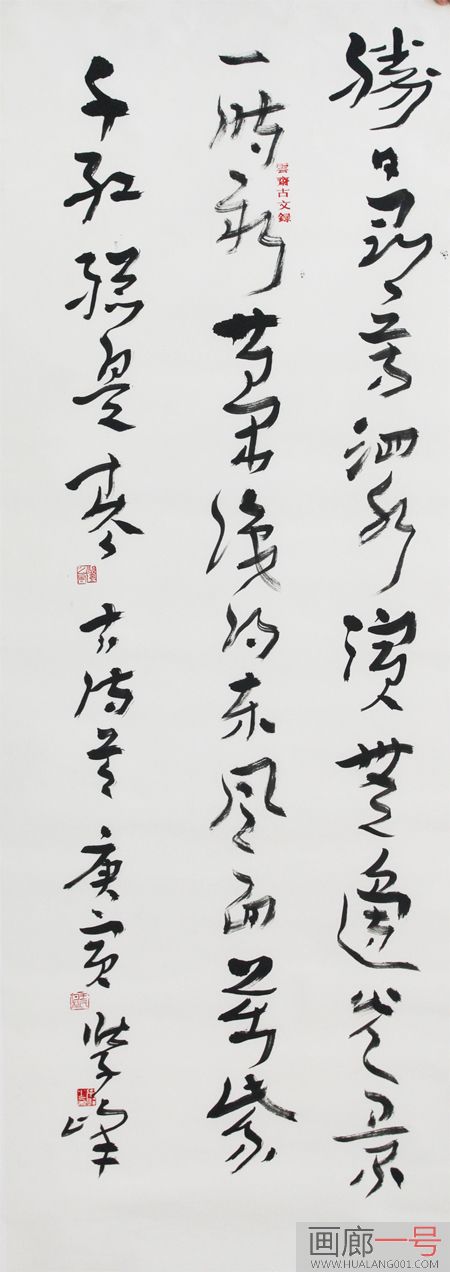 勝日尋芳泗水濱無邊光景
一時新等閒識得東風面萬紫
千紅總是春 古詩一首 庚寅 峰
雲齋古文錄
画廊一号
WWW.HUALANG001.COM